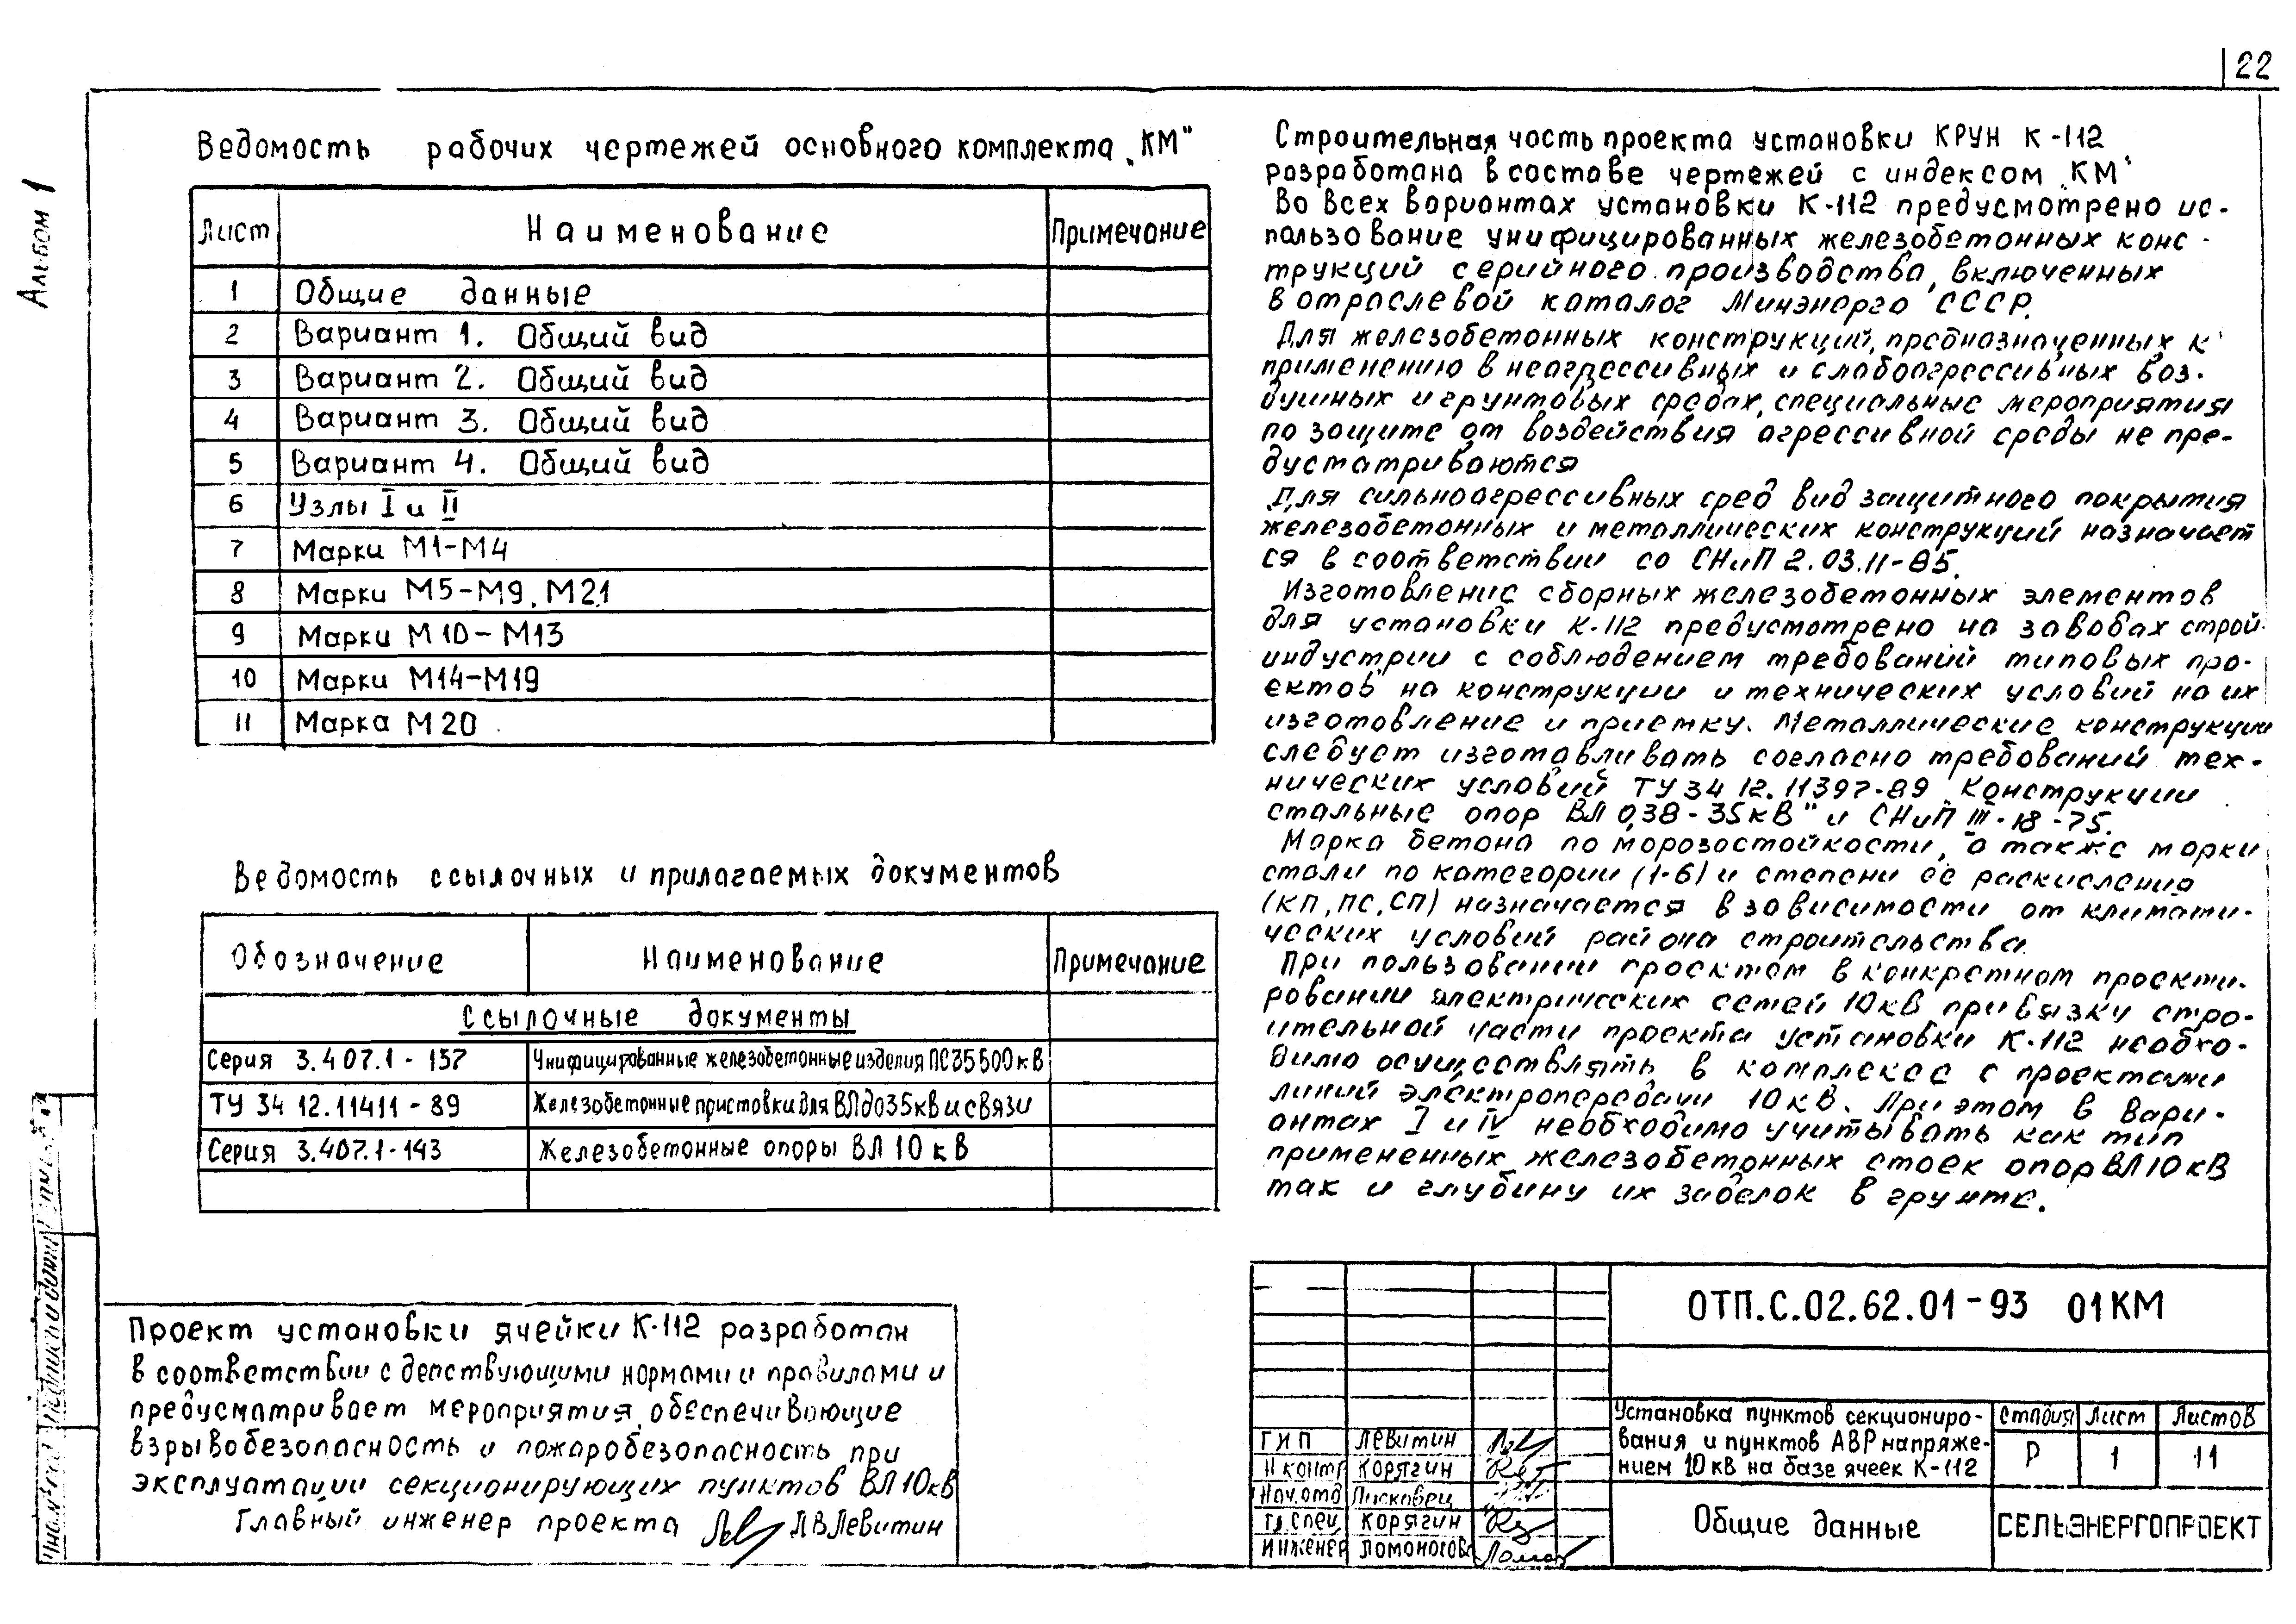 22
Альбом 1
Ведомость рабочих чертежей основного комплекта „КМ"
Лист Наименование Примечание
1 Общие данные
2 Вариант 1. Общий вид
3 Вариант 2. Общий вид
4 Вариант 3. Общий вид
5 Вариант 4. Общий вид
6 Узлы I и II
7 Марки М1-М4
8 Марки М5-М9, М21
9 Марки М10-М13
10 Марки М14-М19
11 Марка М20
Ведомость ссылочных и прилагаемых документов
Обозначение Наименование Примечание
Ссылочные документы
Серия 3.407.1-157 Унифицированные железобетонные изделия ПС35 500кВ
ТУ 34 12.11411-89 Железобетонные приставки для ВЛ до 35кВ и связи
Серия 3.407.1-143 Железобетонные опоры ВЛ 10 кВ
Проект установки ячейки К-112 разработан
в соответствии с действующими нормами и правилами и
предусматривает мероприятия, обеспечивающие
взрывобезопасность и пожаробезопасность при
эксплуатации секционирующих пунктов ВЛ 10кВ
Главный инженер проекта Л В Левитин
Строительная часть проекта установки КРУН К-112
разработана в составе чертежей с индексом „КМ"
Во всех вариантах установки К-112 предусмотрено ис-
пользование унифицированных железобетонных конс-
трукций серийного производства, включенных
в отраслевой каталог Минэнерго СССР.
Для железобетонных конструкций, предназначенных к
применению в неагрессивных и слабоагрессивных воз-
душных и грунтовых средах, специальные мероприятия
по защите от воздействия агрессивной среды не пре-
дусматриваются
Для сильноагрессивных сред вид защитного покрытия
железобетонных и металлических конструкций назначает
ся в соответствии со СНиП 2.03.11-85.
Изготовление сборных железобетонных элементов
для установки К-112 предусмотрено на заводах строй-
индустрии с соблюдением требований типовых про-
ектов на конструкции и технических условий на их
изготовление и приемку. Металлические конструкции
следует изготавливать согласно требований тех-
нических условий ТУ 34 12.11397-89 „Конструкции
стальные опор ВЛ 0,38-35кВ" и СНиП III-18-75.
Марка бетона по морозостойкости, а также марки
стали по категории (1-6) и степени ее раскисления
(КП, ПС, СП) назначается в зависимости от климати-
ческих условий района строительства.
При пользовании проектом в конкретном проекти-
ровании электрических сетей 10кВ привязку стро-
ительной части проекта установки К-112 необхо-
димо осуществлять в комплексе с проектами
линий электропередачи 10кВ. При этом в вари-
антах I и IV необходимо учитывать как тип
примененных железобетонных стоек опор ВЛ 10кВ
так и глубину их заделок в грунте.
ОТП.С.02.62.01-93 01КМ
Установка пунктов секциониро-
вания и пунктов АВР напряже-
нием 10 кВ на базе ячеек К-112
Стадия Лист Листов
Р 1 11
Общие данные
СЕЛЬЭНЕРГОПРОЕКТ
ГИП Левитин
Н контр Корягин
Нач.отд Лисковец
Гл.спец. Корягин
Инженер Ломоносова